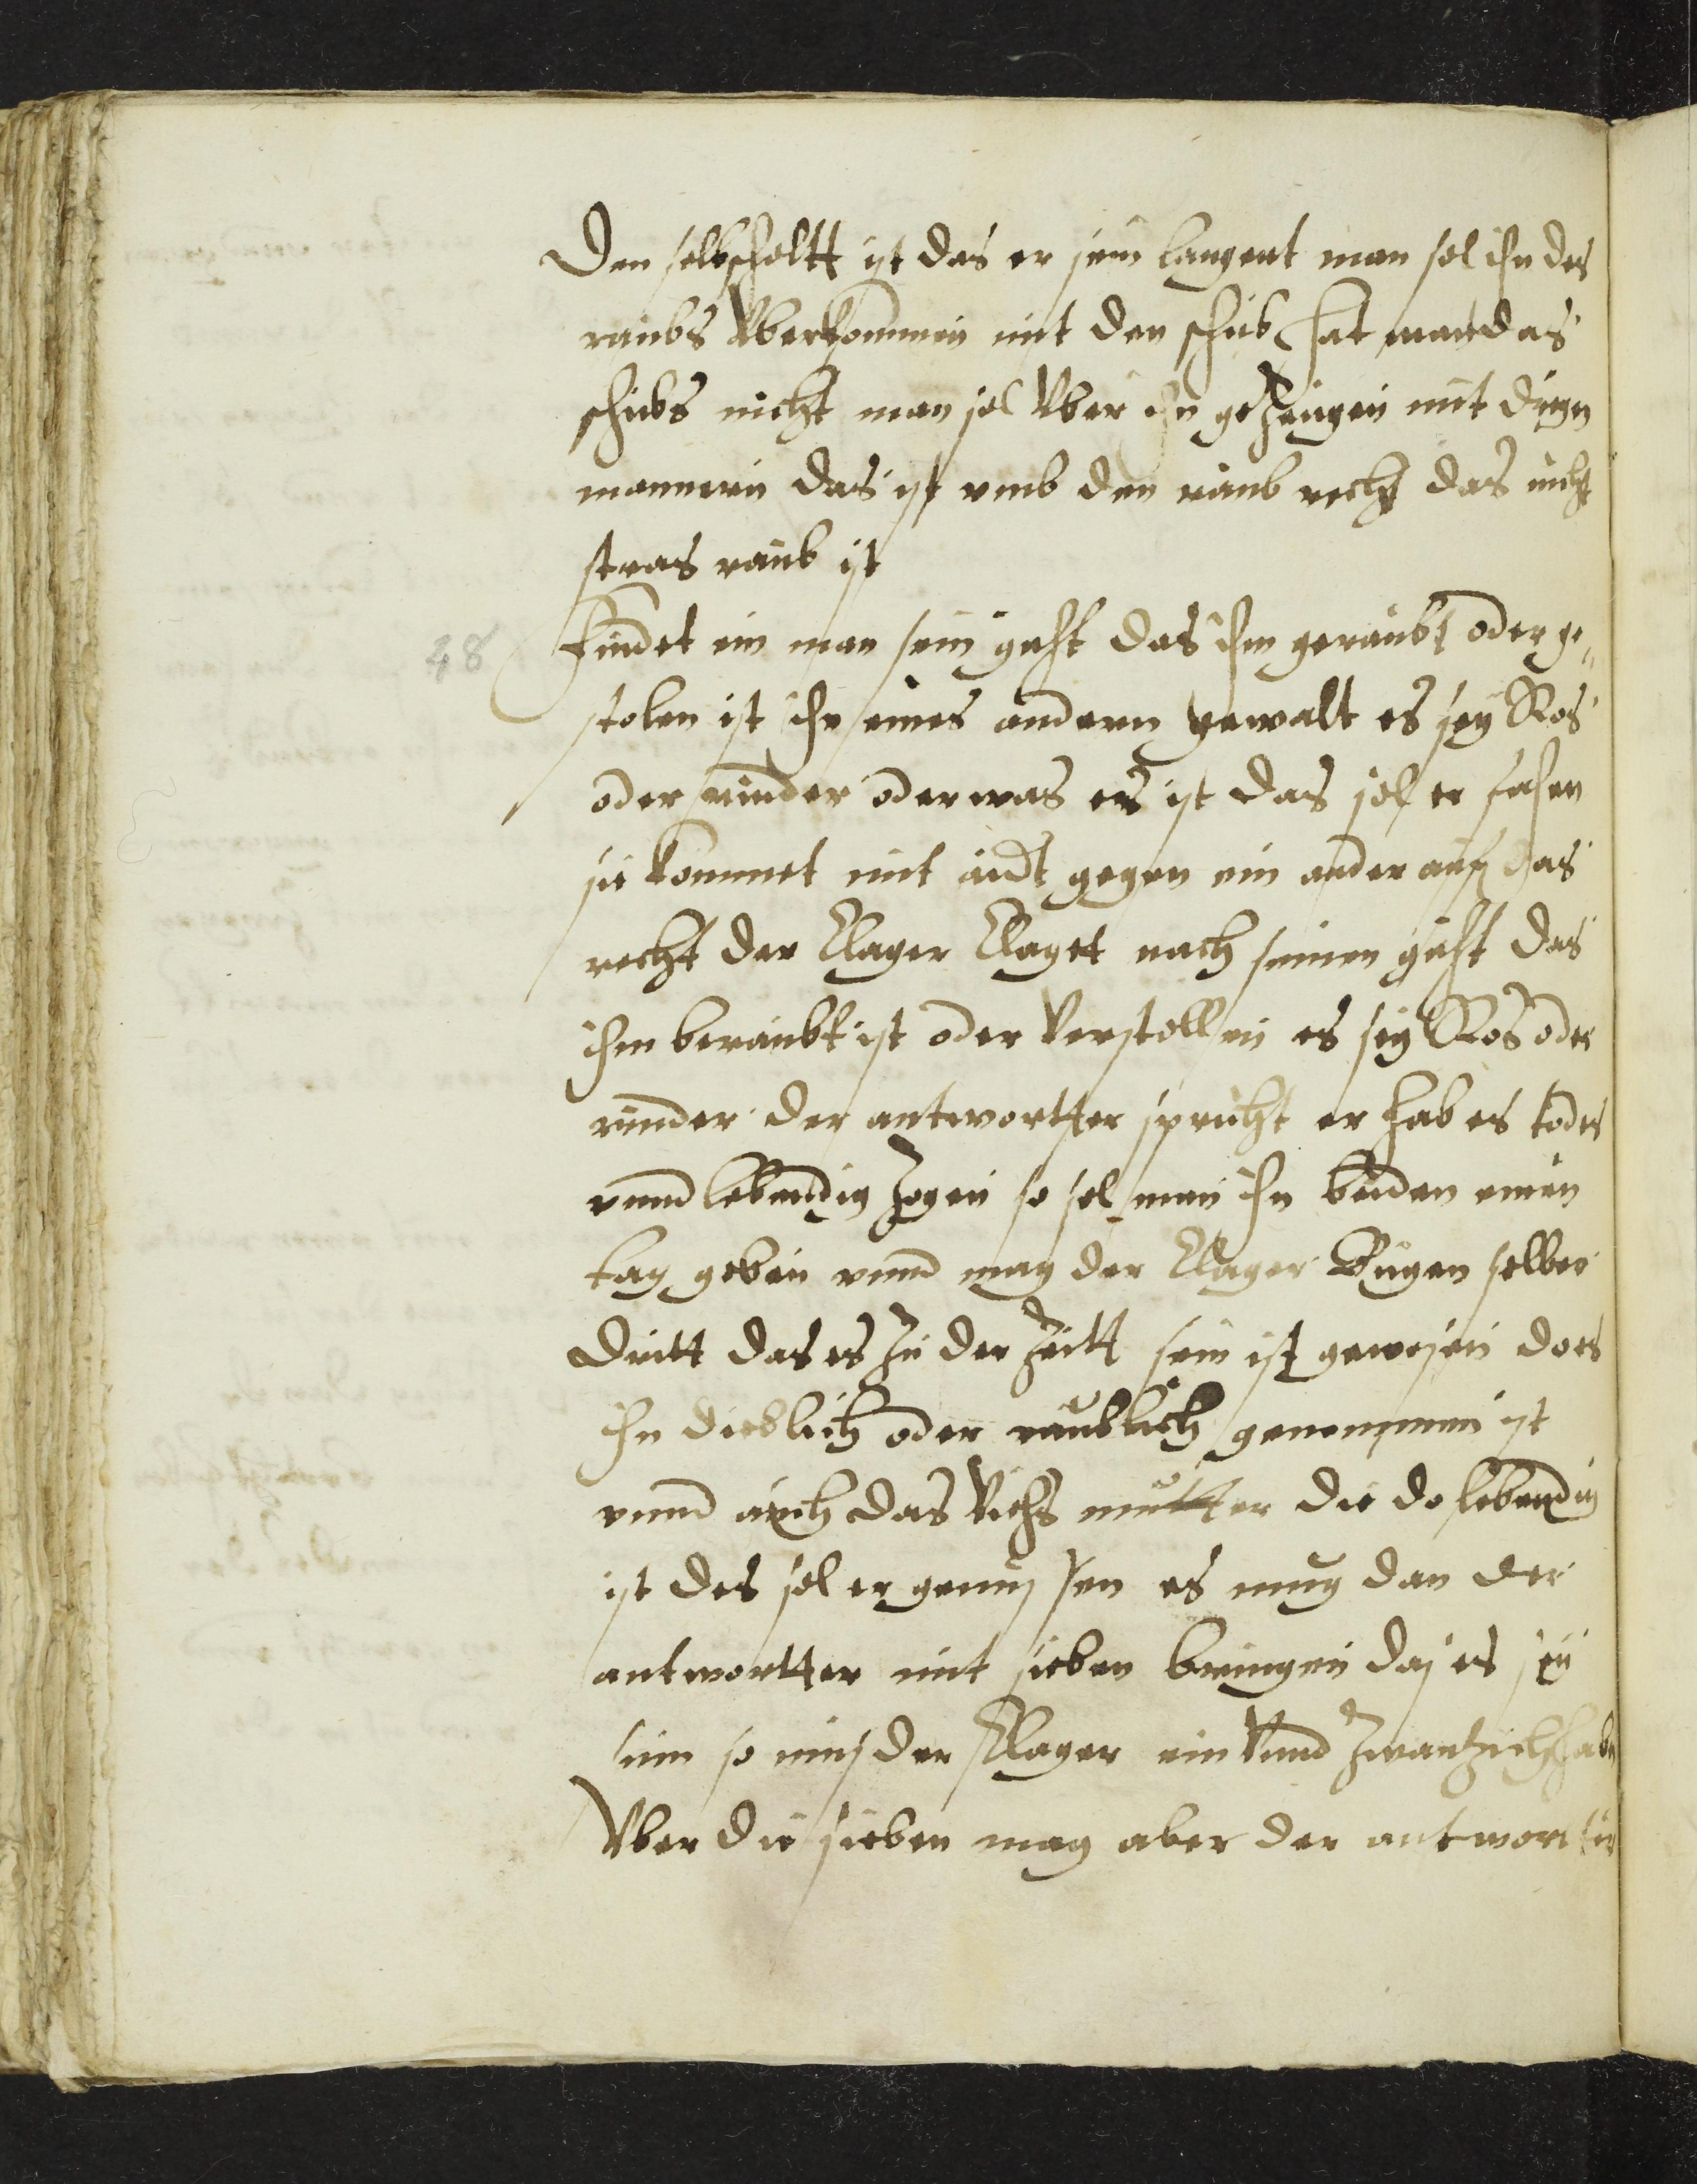 Den selbscholtt ist das er sein laugent man sol ihn des
raubs Vberkommen mit den schub hat man das
schubs nicht man sol Vber ihn gezeugen mit dreyn
mannern das ist vmb den raub recht das nicht
stras raub ist
48 Findet ein man sein guht das ihm geraubt oder ge„
stolen ist ihn eines andern gewalt es sey Ros
oder rinder oder was es ist das sol er fahen
sie kommet mit aidt gegen ein ander auf das
recht der Clager Claget nach seinen guht das
ihm beraubt ist oder Verstollen es sey Ros oder
rinder der antwortter spricht er hab es todes
vnnd lebendig zogen so sol man ihn beiden einen
tag geben vnnd mag der Clager Zeugen selber
dritt das es zu der Zeitt sein ist gewesen do es
ihn dieblich oder raublich genommen ist
vnnd auch das Viehs mutter die do lebendig
ist des sol er geniessen es mug dan der
antwortter mit sieben bringen das es sey
sein so mus der Clager ein Vnnd zwantzich haben
Vber die sieben mag aber der antwortter